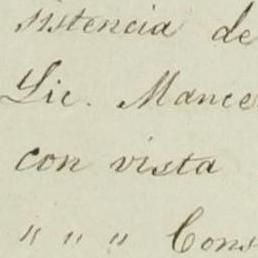 sistencia de
Lic. Mance
con vista
" " " Cons